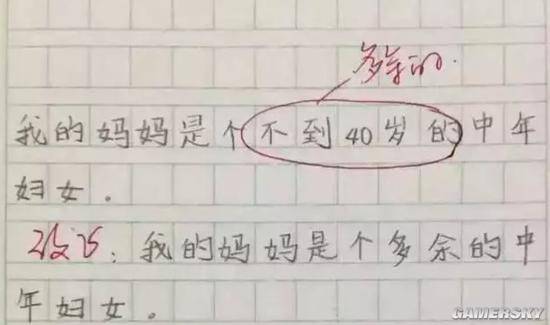 多余的.
我的妈妈是个不到40岁的中年
妇女.
改正:我的妈妈是个多余的中
年妇女.
GAMERSKY